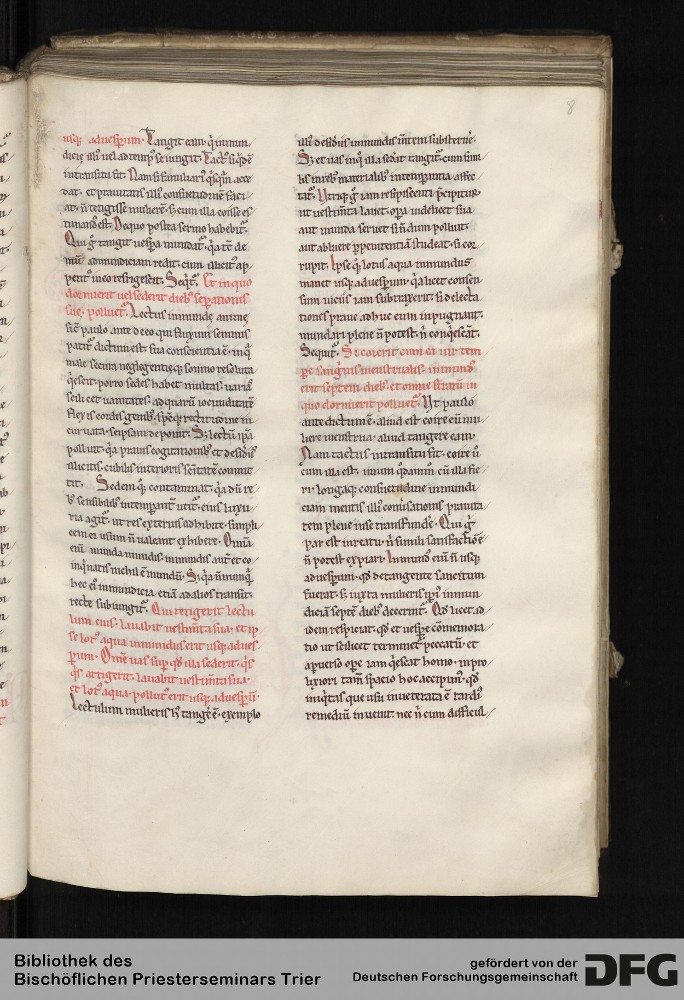 8
usq; aduesperum. Tangit eam. qui inmun
dicie illius uel ad tempus se iungit. Tactus siquidem
intransitu fit. Nam si familiarius quisquam acce
dat. et prauitatis illius consuetudinem faci
at. non tetigisse mulierem. sed cum illa
De quo postea sermo habebitur.
Qui ergo tangit uespera mundatur. quia
mundiciam redit. cum illicitus ap
petitus in eo refrigescit. Sequitur. Et in quo
dormierit uel sederit diebus separationis
sue. polluetur. Lectus inmunde anime
sicut paulo ante de eo qui fluxum seminis
patitur dictum est. sua conscientia est. in qua
male secura neglegentieque somno resoluta
quiescit. porro sedes habet multas. uarias
scilicet uanitates. ad quarum iocunditatem
flexis cordis genibus. speque rectitudine in
curuata. se ipsam deponit. Sed lectum ipsa
polluit. quia prauis cogitationibus et desideriis
illicitis. cubilis interioris
Sedem quoque contaminat. quia dum re
bus sensibilibus intemperanter utitur. eius luxu
ria agitur. ut res exterius adhibite. simpli
cem ei usum non ualeant exhibere. Omnia
enim munda mundis. inmundis autem et co
inquinatis nichil est mundum. Sed quia
hec eius inmundicia etiam ad alios transit.
recte subiungitur. Qui tetigerit lectu
lum eius. lauabit uestimenta sua. et ip
se lotus aqua inmundus erit usque ad ues
perum. Omne uas super quod illa sederit. quis
quis attigerit. lauabit uestimenta sua.
et lotus aqua. pollutus erit usque ad uesperum.
Lectulum mulieris hunc tangere est. exemplo
illius desideriis inmundis mentem substernere.
Sed et uas in quo illa sedit tangitur. cum simi
lis in rebus materialibus intemperantia affec
tatur. Vtrique ergo iam resipiscenti precipitur
ut uestimenta lauet. opera uidelicet sua
aut munda seruet si nondum polluit.
aut abluere per penitentiam studeat. si cor
rupit. Ipse quoque lotus aqua inmundus
manet usque ad uesperum. quia licet consen
sum uiciis iam subtraxerit. si delecta
tiones praue adhuc eum inpugnant.
mundari plene non potest. ni conquiescant.
Sequitur. Si coierit cum ea uir tem
pore sanguinis menstrualis. inmundus
erit septem diebus. et omne stratum in
quo dormierit polluetur. Vt paulo
ante dictum est. aliud est coire cum mu
liere menstrua. aliud tangere eam.
Nam tactus in transitu fit. coire uero
cum illa est. unum quodammodo cum illa fie
ri. longaque consuetudine inmundi
ciam mentis illius
rem plene in se transfundere. Qui ergo
par est in reatu. non simili satisfactione
non potest expiari. Inmundus enim non usque
ad uesperum. quod de tangente sancitum
fuerat. sed iuxta mulieris ipsius inmun
diciam septem diebus decernitur. Quod licet ad
idem respiciat. quod et uespere commemora
tio. ut scilicet terminetur peccatum. et
a peruerso opere iam quiescat homo. in pro
lixiori tamen spacio hoc accipitur. quod
iniquitas que usu inueterata est. tardius
remedium inuenit. nec non cum difficul
Bibliothek des
Bischöflichen Priesterseminars Trier
gefördert von der
Deutschen Forschungsgemeinschaft
DFG